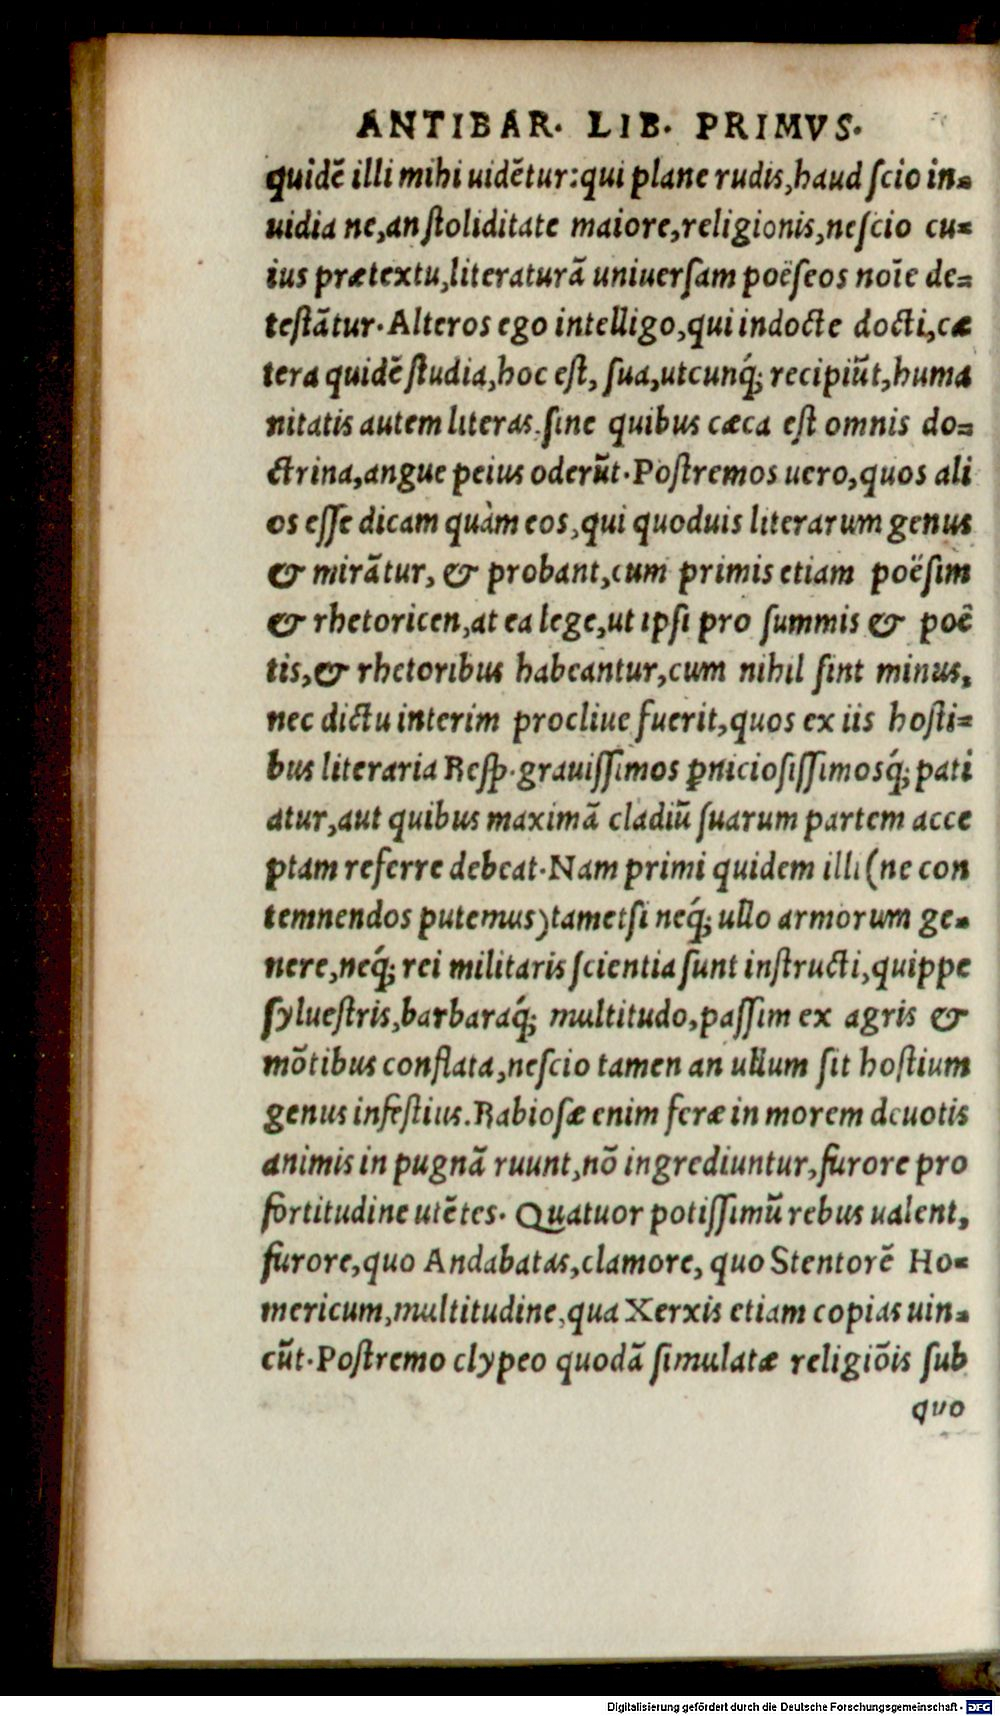 ANTIBAR. LIB. PRIMVS.
quidẽ illi mihi uidẽtur: qui plane rudis, haud ſcio in-
uidia ne, an ſtoliditate maiore, religionis, neſcio cu-
ius prætextu, literaturã uniuerſam poëſeos noĩe de-
teſtãtur. Alteros ego intelligo, qui indocte docti, cæ
tera quidẽ ſtudia, hoc eſt, ſua, utcunq́; recipiũt, huma
nitatis autem literas, ſine quibus cæca eſt omnis do-
ctrina, angue peius oderũt. Poſtremos uero, quos ali
os eſſe dicam quàm eos, qui quoduis literarum genus
& mirãtur, & probant, cum primis etiam poëſim
& rhetoricen, at ea lege, ut ipſi pro ſummis & poë
tis, & rhetoribus habeantur, cum nihil ſint minus,
nec dictu interim procliue fuerit, quos ex iis hoſti-
bus literaria Reſp. grauiſſimos ꝑnicioſiſſimosq́; pati
atur, aut quibus maximã cladiũ ſuarum partem acce
ptam referre debeat. Nam primi quidem illi (ne con
temnendos putemus) tametſi neq́; ullo armorum ge-
nere, neq́; rei militaris ſcientia ſunt inſtructi, quippe
ſylueſtris, barbaraq́; multitudo, paſſim ex agris &
mõtibus conflata, neſcio tamen an ullum ſit hoſtium
genus infeſtius. Rabioſæ enim feræ in morem deuotis
animis in pugnã ruunt, nõ ingrediuntur, furore pro
fortitudine utẽtes. Quatuor potiſſimũ rebus ualent,
furore, quo Andabatas, clamore, quo Stentorẽ Ho-
mericum, multitudine, qua Xerxis etiam copias uin-
cũt. Poſtremo clypeo quodã ſimulatæ religiõis ſub
quo
Digitalisierung gefördert durch die Deutsche Forschungsgemeinschaft - DFG